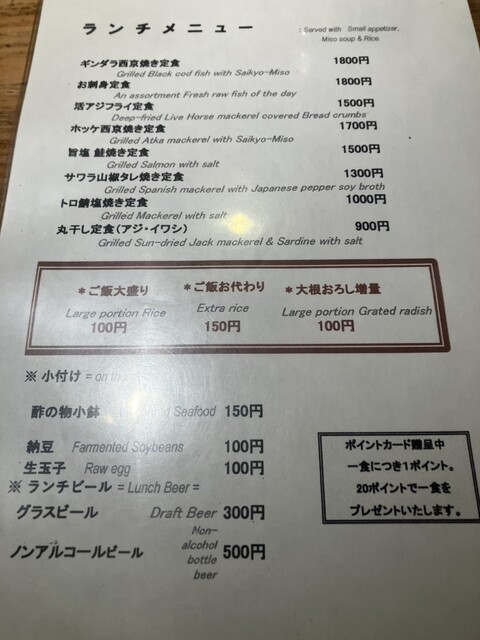 ランチメニュー
: Served with Small appetizer,
Miso soup & Rice.
ギンダラ西京焼き定食 1800円
Grilled Black cod fish with Saikyo-Miso
お刺身定食 1800円
An assortment Fresh raw fish of the day
活アジフライ定食 1500円
Deep-fried Live Horse mackerel covered Bread crumbs
ホッケ西京焼き定食 1700円
Grilled Atka mackerel with Saikyo-Miso
旨塩 鮭焼き定食 1500円
Grilled Salmon with salt
サワラ山椒タレ焼き定食 1300円
Grilled Spanish mackerel with Japanese pepper soy broth
トロ鯖塩焼き定食 1000円
Grilled Mackerel with salt
丸干し定食(アジ・イワシ) 900円
Grilled Sun-dried Jack mackerel & Sardine with salt
*ご飯大盛り *ご飯お代わり *大根おろし増量
Large portion Rice Extra rice Large portion Grated radish
100円 150円 100円
※ 小付け = on the
酢の物小鉢 Seafood 150円
納豆 Farmented Soybeans 100円
生玉子 Raw egg 100円
※ ランチビール = Lunch Beer =
グラスビール Draft Beer 300円
ノンアルコールビール Non-
alcohol
bottle
beer 500円
ポイントカード贈呈中
一食につき1ポイント。
20ポイントで一食を
プレゼントいたします。